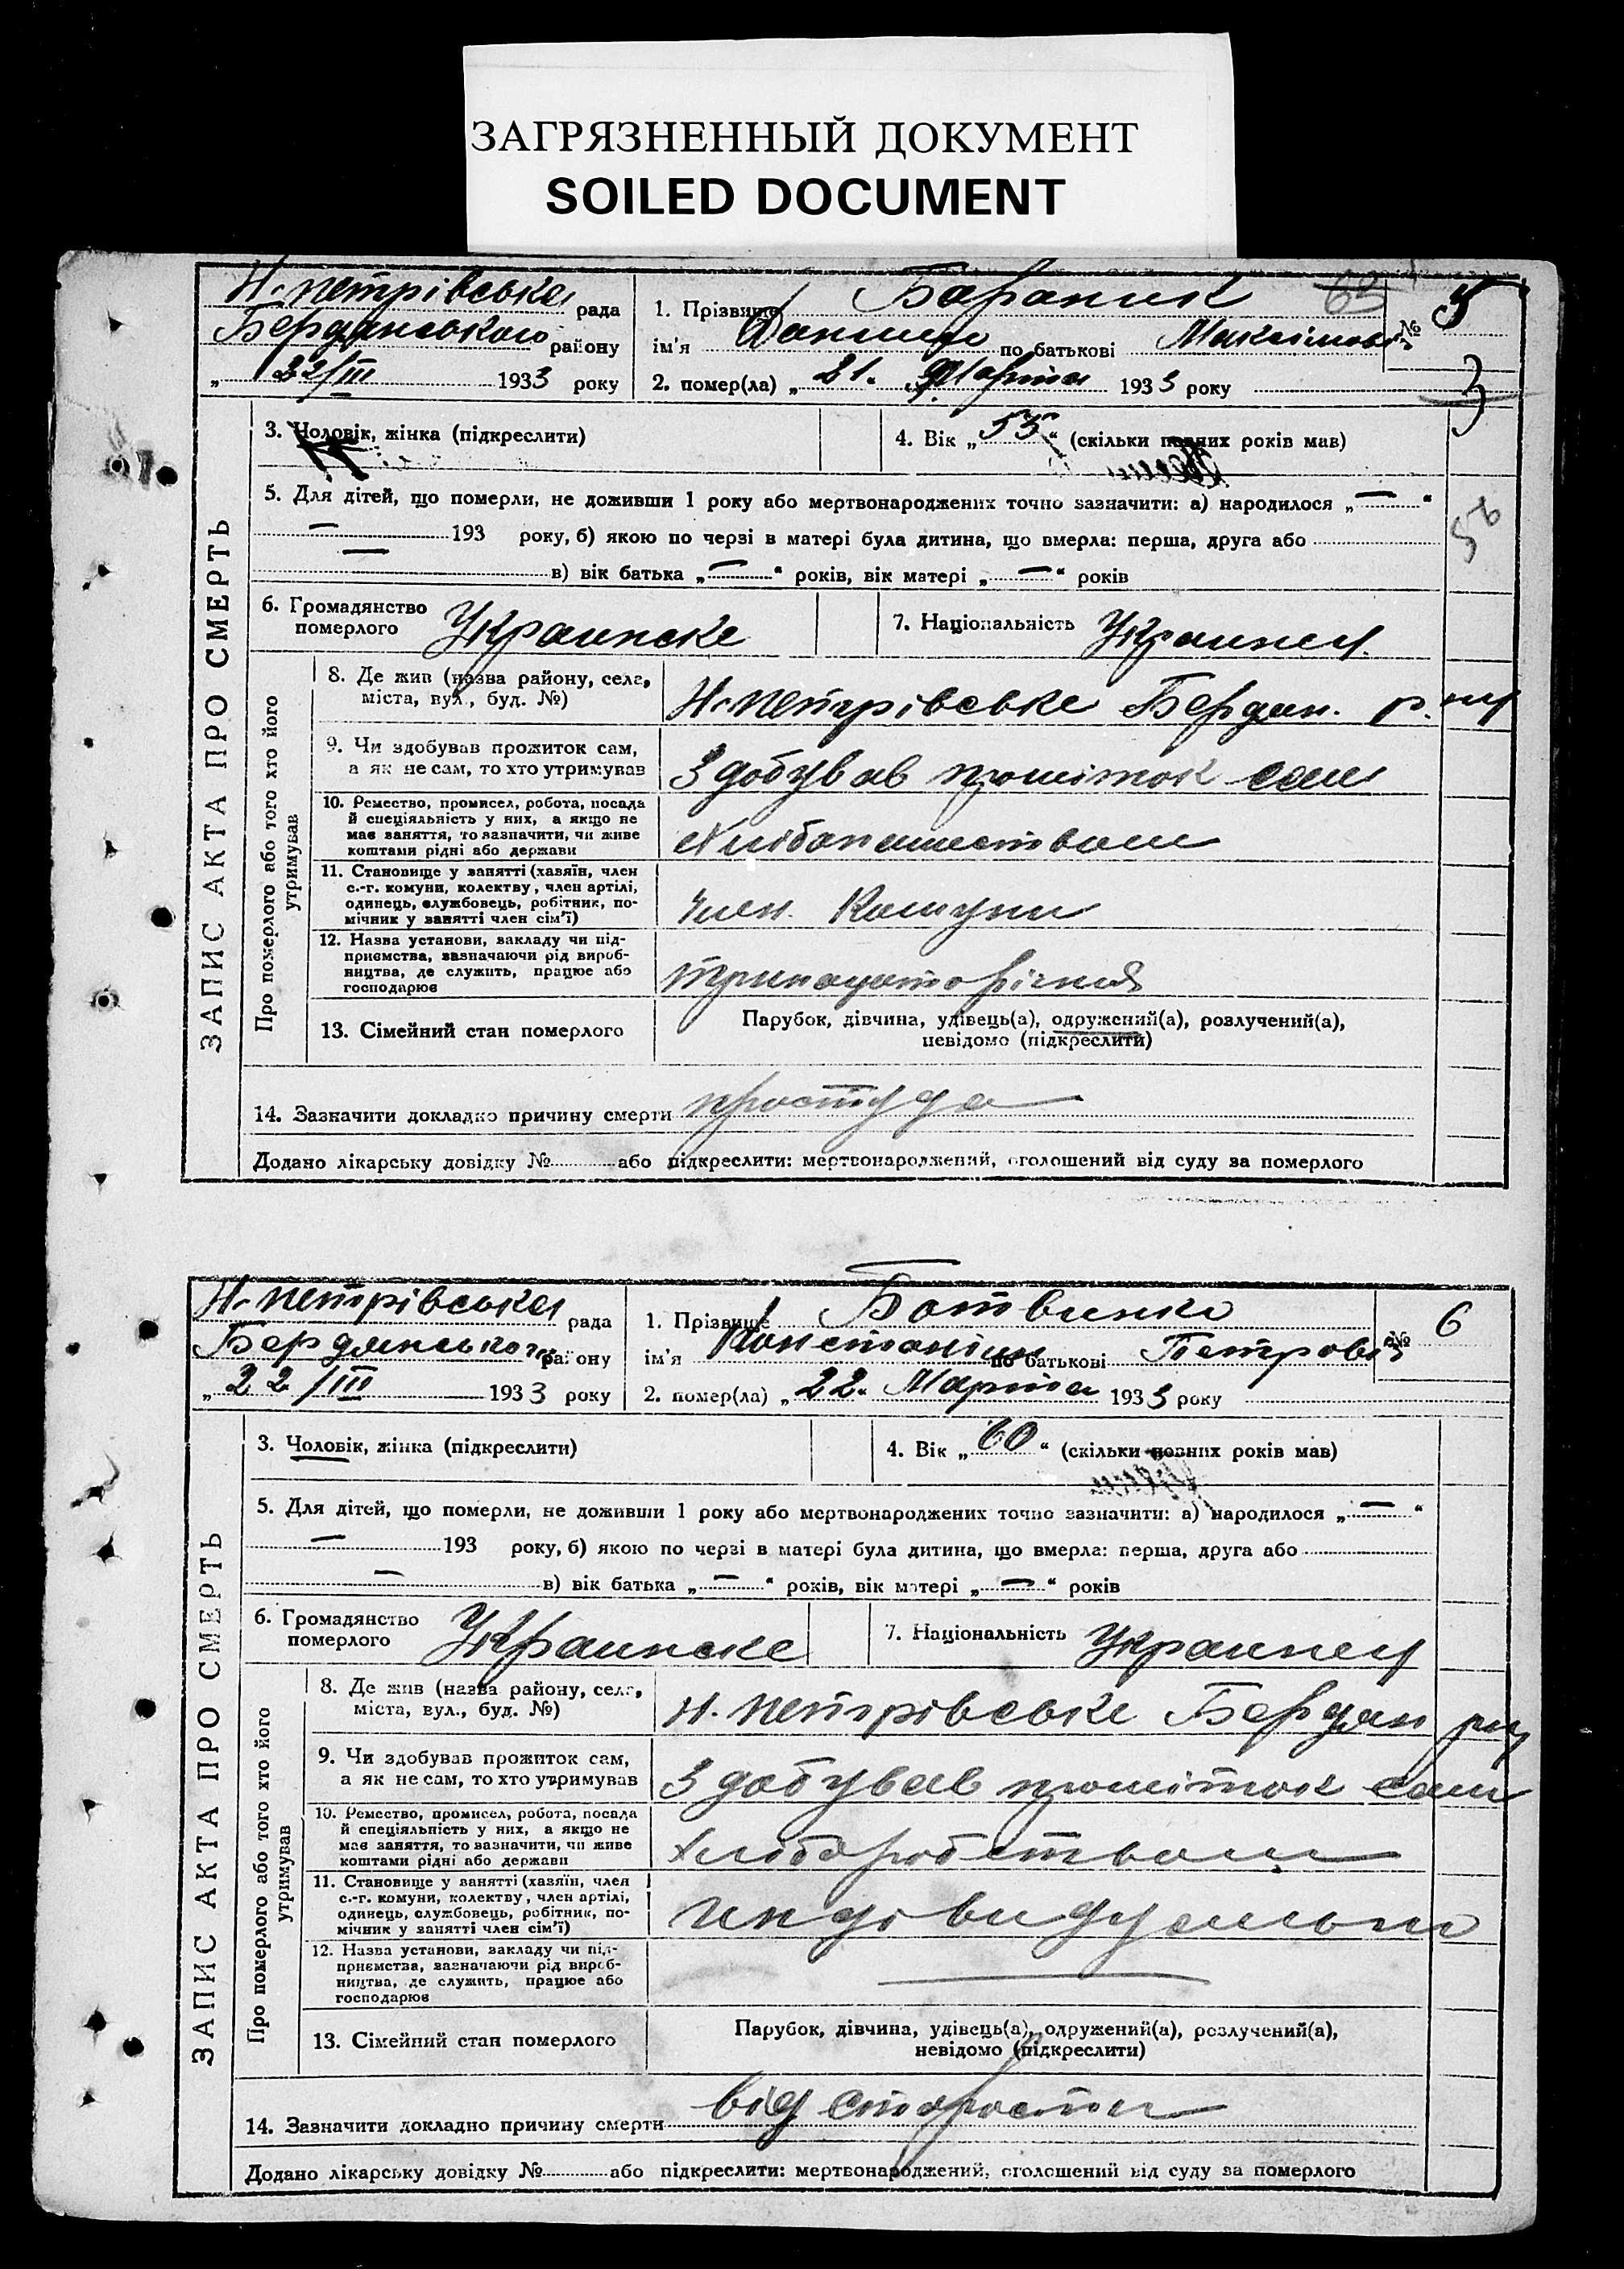 ЗАГРЯЗНЕННЫЙ ДОКУМЕНТ
SOILED DOCUMENT
Н-петрівська рада
Бердянського району
„22/III 1933 року
1. Прізвище Бараник
ім'я Данило по батькові Максімовіч
2. помер(ла) „21. Марта 1933 року
№ 5
63
3
56
ЗАПИС АКТА ПРО СМЕРТЬ
3. Чоловік, жінка (підкреслити)
4. Вік „53“ (скільки повних років мав)
5. Для дітей, що померли, не доживши 1 року або мертвонароджених точно зазначити: а) народилося „—“
— 193 року, б) якою по черзі в матері була дитина, що вмерла: перша, друга або
— в) вік батька „—“ років, вік матері „—“ років
6. Громадянство померлого Украинске
7. Національність Украинец
Про померлого або того хто його утримував
8. Де жив (назва району, села, міста, вул., буд. №)
Н-петрівське Бердян. р-ну
9. Чи здобував прожиток сам, а як не сам, то хто утримував
Здобував прожіток сам
10. Ремество, промисел, робота, посада й спеціяльність у них, а якщо не має заняття, то зазначити, чи живе коштами рідні або держави
Хлібопашеством
11. Становище у занятті (хазяїн, член с.-г. комуни, колектву, член артілі, одинець, службовець, робітник, помічник у занятті член сім'ї)
член. Комуни
12. Назва установи, закладу чи підприємства, зазначаючи рід виробництва, де служить, працює або господарює
13. Сімейний стан померлого
Парубок, дівчина, удівець(а), одружений(а), розлучений(а),
невідомо (підкреслити)
14. Зазначити докладно причину смерти простуда
Додано лікарську довідку № або підкреслити: мертвонароджений, оголошений від суду за померлого
Н-петрівська рада
Бердянського району
„22/III 1933 року
1. Прізвище Ботвинко
ім'я Константін по батькові Петровіч
2. помер(ла) „22. Марта 1933 року
№ 6
ЗАПИС АКТА ПРО СМЕРТЬ
3. Чоловік, жінка (підкреслити)
4. Вік „60“ (скільки повних років мав)
5. Для дітей, що померли, не доживши 1 року або мертвонароджених точно зазначити: а) народилося „—“
— 193 року, б) якою по черзі в матері була дитина, що вмерла: перша, друга або
— в) вік батька „—“ років, вік матері „—“ років
6. Громадянство померлого Украинске
7. Національність Украинец
Про померлого або того хто його утримував
8. Де жив (назва району, села, міста, вул., буд. №)
Н. петрівське Бердян рну
9. Чи здобував прожиток сам, а як не сам, то хто утримував
Здобував прожіток сам
10. Ремество, промисел, робота, посада й спеціяльність у них, а якщо не має заняття, то зазначити, чи живе коштами рідні або держави
Хліборобством
11. Становище у занятті (хазяїн, член с.-г. комуни, колектву, член артілі, одинець, службовець, робітник, помічник у занятті член сім'ї)
12. Назва установи, закладу чи підприємства, зазначаючи рід виробництва, де служить, працює або господарює
—
13. Сімейний стан померлого
Парубок, дівчина, удівець(а), одружений(а), розлучений(а),
невідомо (підкреслити)
14. Зазначити докладно причину смерти від старости
Додано лікарську довідку № або підкреслити: мертвонароджений, оголошений від суду за померлого